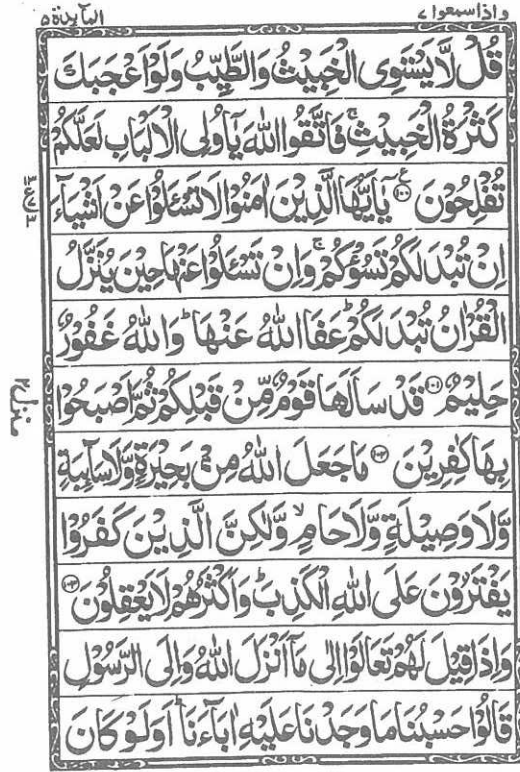 واذاسمعوا ٧
المآىدة ٥
قُلْ لَّا يَسْتَوِى الْخَبِيْثُ وَالطَّيِّبُ وَلَوْ اَعْجَبَكَ
كَثْرَةُ الْخَبِيْثِ ۚ فَاتَّقُوا اللهَ يٰٓاُولِى الْاَلْبَابِ لَعَلَّكُمْ
تُفْلِحُوْنَ ﴿١٠٠﴾ ع يٰٓاَيُّهَا الَّذِيْنَ اٰمَنُوْا لَا تَسْـَٔلُوْا عَنْ اَشْيَآءَ
اِنْ تُبْدَ لَكُمْ تَسُؤْكُمْ ۚ وَاِنْ تَسْـَٔلُوْا عَنْهَا حِيْنَ يُنَزَّلُ
الْقُرْاٰنُ تُبْدَ لَكُمْ ؕ عَفَا اللهُ عَنْهَا ؕ وَاللهُ غَفُوْرٌ
حَلِيْمٌ ﴿١٠١﴾ قَدْ سَاَلَهَا قَوْمٌ مِّنْ قَبْلِكُمْ ثُمَّ اَصْبَحُوْا
بِهَا كٰفِرِيْنَ ﴿١٠٢﴾ مَا جَعَلَ اللهُ مِنْۢ بَحِيْرَةٍ وَّلَا سَآىِٕبَةٍ
وَّلَا وَصِيْلَةٍ وَّلَا حَامٍ ۙ وَّلٰكِنَّ الَّذِيْنَ كَفَرُوْا
يَفْتَرُوْنَ عَلَى اللهِ الْكَذِبَ ؕ وَاَكْثَرُهُمْ لَا يَعْقِلُوْنَ ﴿١٠٣﴾
وَاِذَا قِيْلَ لَهُمْ تَعَالَوْا اِلٰى مَآ اَنْزَلَ اللهُ وَاِلَى الرَّسُوْلِ
قَالُوْا حَسْبُنَا مَا وَجَدْنَا عَلَيْهِ اٰبَآءَنَا ؕ اَوَلَوْ كَانَ
منزل ٢